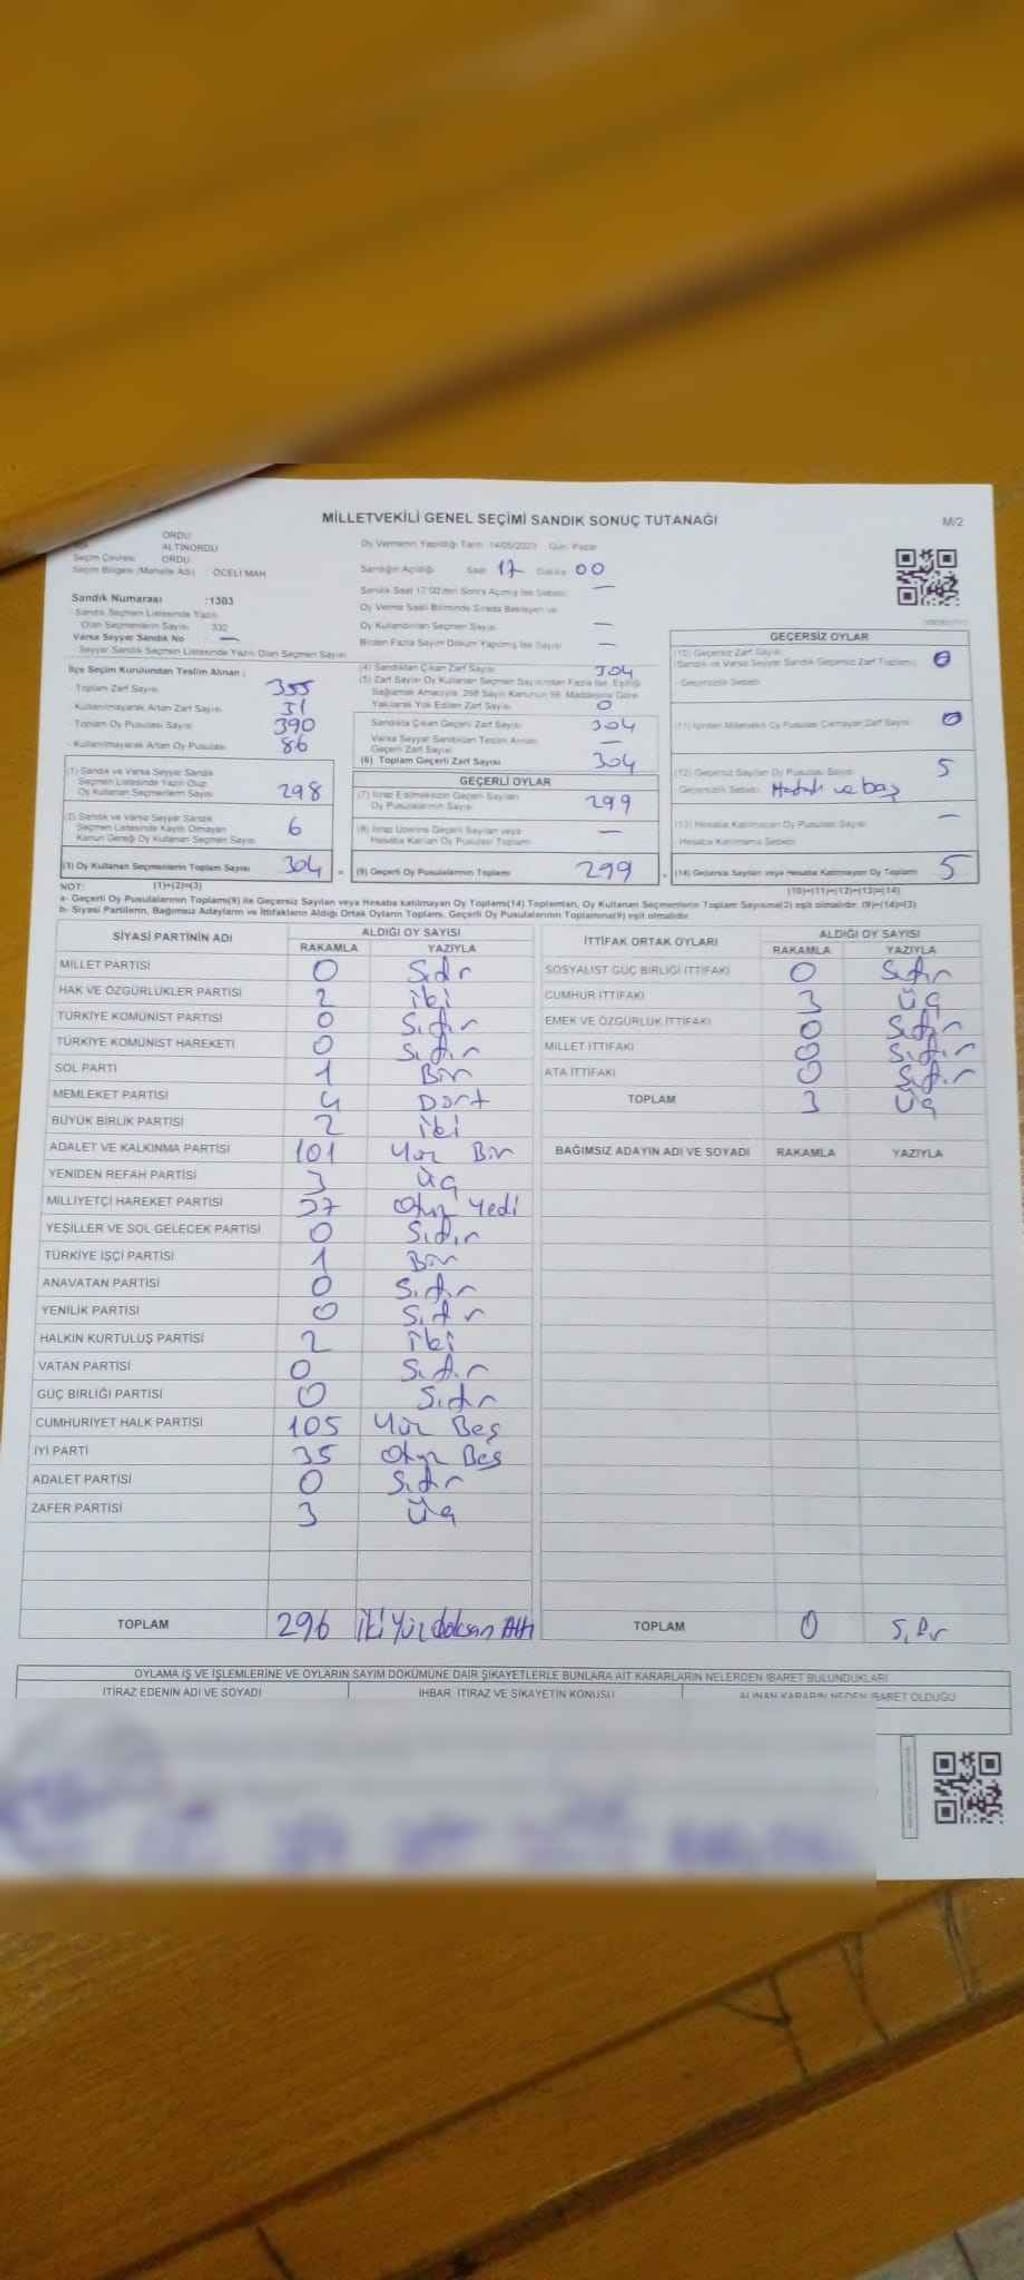 MİLLETVEKİLİ GENEL SEÇİMİ SANDIK SONUÇ TUTANAĞI
M/2
ORDU
ALTINORDU
Seçim Çevresi ORDU
Seçim Bölgesi (Mahalle Adı) : ÖCELİ MAH
Sandık Numarası :1303
Sandık Seçmen Listesinde Yazılı
Olan Seçmenlerin Sayısı 332
Varsa Seyyar Sandık No —
Seyyar Sandık Seçmen Listesinde Yazılı Olan Seçmen Sayısı
Oy Vermenin Yapıldığı Tarih: 14/05/2023 Gün: Pazar
Sandığın Açıldığı Saat 17 Dakika 00
Sandık Saat 17:00'den Sonra Açılmış İse Sebebi: —
Oy Verme Saati Bitiminde Sırada Bekleyen ve
Oy Kullandırılan Seçmen Sayısı —
Birden Fazla Sayım Döküm Yapılmış İse Sayısı —
İlçe Seçim Kurulundan Teslim Alınan :
- Toplam Zarf Sayısı 355
- Kullanılmayarak Artan Zarf Sayısı 51
- Toplam Oy Pusulası Sayısı 390
- Kullanılmayarak Artan Oy Pusulası 86
(1) Sandık ve Varsa Seyyar Sandık
Seçmen Listesinde Yazılı Olup
Oy Kullanan Seçmenlerin Sayısı 298
(2) Sandık ve Varsa Seyyar Sandık
Seçmen Listesinde Kayıtlı Olmayan
Kanun Gereği Oy Kullanan Seçmen Sayısı 6
(3) Oy Kullanan Seçmenlerin Toplam Sayısı 304 =
(1)+(2)=(3)
(4) Sandıktan Çıkan Zarf Sayısı 304
(5) Zarf Sayısı Oy Kullanan Seçmen Sayısından Fazla İse, Eşitliği
Sağlamak Amacıyla, 298 Sayılı Kanunun 98. Maddesine Göre
Yakılarak Yok Edilen Zarf Sayısı 0
Sandıkta Çıkan Geçerli Zarf Sayısı 304
Varsa Seyyar Sandıktan Teslim Alınan
Geçerli Zarf Sayısı —
(6) Toplam Geçerli Zarf Sayısı 304
GEÇERLİ OYLAR
(7) İtiraz Edilmeksizin Geçerli Sayılan
Oy Pusulalarının Sayısı 299
(8) İtiraz Üzerine Geçerli Sayılan veya
Hesaba Katılan Oy Pusulası Toplamı —
(9) Geçerli Oy Pusulalarının Toplamı 299 +
GEÇERSİZ OYLAR
(10) Geçersiz Zarf Sayısı
(Sandık ve Varsa Seyyar Sandık Geçersiz Zarf Toplamı) 0
- Geçersizlik Sebebi
(11) İçinden Milletvekili Oy Pusulası Çıkmayan Zarf Sayısı 0
(12) Geçersiz Sayılan Oy Pusulası Sayısı 5
Geçersizlik Sebebi Hatalı ve boş
(13) Hesaba Katılmayan Oy Pusulası Sayısı —
Hesaba Katılmama Sebebi
(14) Geçersiz Sayılan veya Hesaba Katılmayan Oy Toplamı 5
(10)+(11)+(12)+(13)=(14)
NOT:
a- Geçerli Oy Pusulalarının Toplamı(9) ile Geçersiz Sayılan veya Hesaba katılmayan Oy Toplamı(14) Toplamları, Oy Kullanan Seçmenlerin Toplam Sayısına(3) eşit olmalıdır. (9)+(14)=(3)
b- Siyasi Partilerin, Bağımsız Adayların ve İttifakların Aldığı Ortak Oyların Toplamı, Geçerli Oy Pusulalarının Toplamına(9) eşit olmalıdır
SİYASİ PARTİNİN ADI ALDIĞI OY SAYISI
RAKAMLA YAZIYLA
MİLLET PARTİSİ 0 Sıfır
HAK VE ÖZGÜRLÜKLER PARTİSİ 2 iki
TÜRKİYE KOMÜNİST PARTİSİ 0 Sıfır
TÜRKİYE KOMÜNİST HAREKETİ 0 Sıfır
SOL PARTİ 1 Bir
MEMLEKET PARTİSİ 4 Dört
BÜYÜK BİRLİK PARTİSİ 2 iki
ADALET VE KALKINMA PARTİSİ 101 Yüz Bir
YENİDEN REFAH PARTİSİ 3 Üç
MİLLİYETÇİ HAREKET PARTİSİ 37 Otuz Yedi
YEŞİLLER VE SOL GELECEK PARTİSİ 0 Sıfır
TÜRKİYE İŞÇİ PARTİSİ 1 Bir
ANAVATAN PARTİSİ 0 Sıfır
YENİLİK PARTİSİ 0 Sıfır
HALKIN KURTULUŞ PARTİSİ 2 iki
VATAN PARTİSİ 0 Sıfır
GÜÇ BİRLİĞİ PARTİSİ 0 Sıfır
CUMHURİYET HALK PARTİSİ 105 Yüz Beş
İYİ PARTİ 35 Otuz Beş
ADALET PARTİSİ 0 Sıfır
ZAFER PARTİSİ 3 Üç
TOPLAM 296 İki Yüz doksan Altı
İTTİFAK ORTAK OYLARI ALDIĞI OY SAYISI
RAKAMLA YAZIYLA
SOSYALİST GÜÇ BİRLİĞİ İTTİFAKI 0 Sıfır
CUMHUR İTTİFAKI 3 Üç
EMEK VE ÖZGÜRLÜK İTTİFAKI 0 Sıfır
MİLLET İTTİFAKI 0 Sıfır
ATA İTTİFAKI 0 Sıfır
TOPLAM 3 Üç
BAĞIMSIZ ADAYIN ADI VE SOYADI RAKAMLA YAZIYLA
TOPLAM 0 Sıfır
OYLAMA İŞ VE İŞLEMLERİNE VE OYLARIN SAYIM DÖKÜMÜNE DAİR ŞİKAYETLERLE BUNLARA AİT KARARLARIN NELERDEN İBARET BULUNDUKLARI
İTİRAZ EDENİN ADI VE SOYADI İHBAR, İTİRAZ VE ŞİKAYETİN KONUSU ALINAN KARARIN NEDEN İBARET OLDUĞU